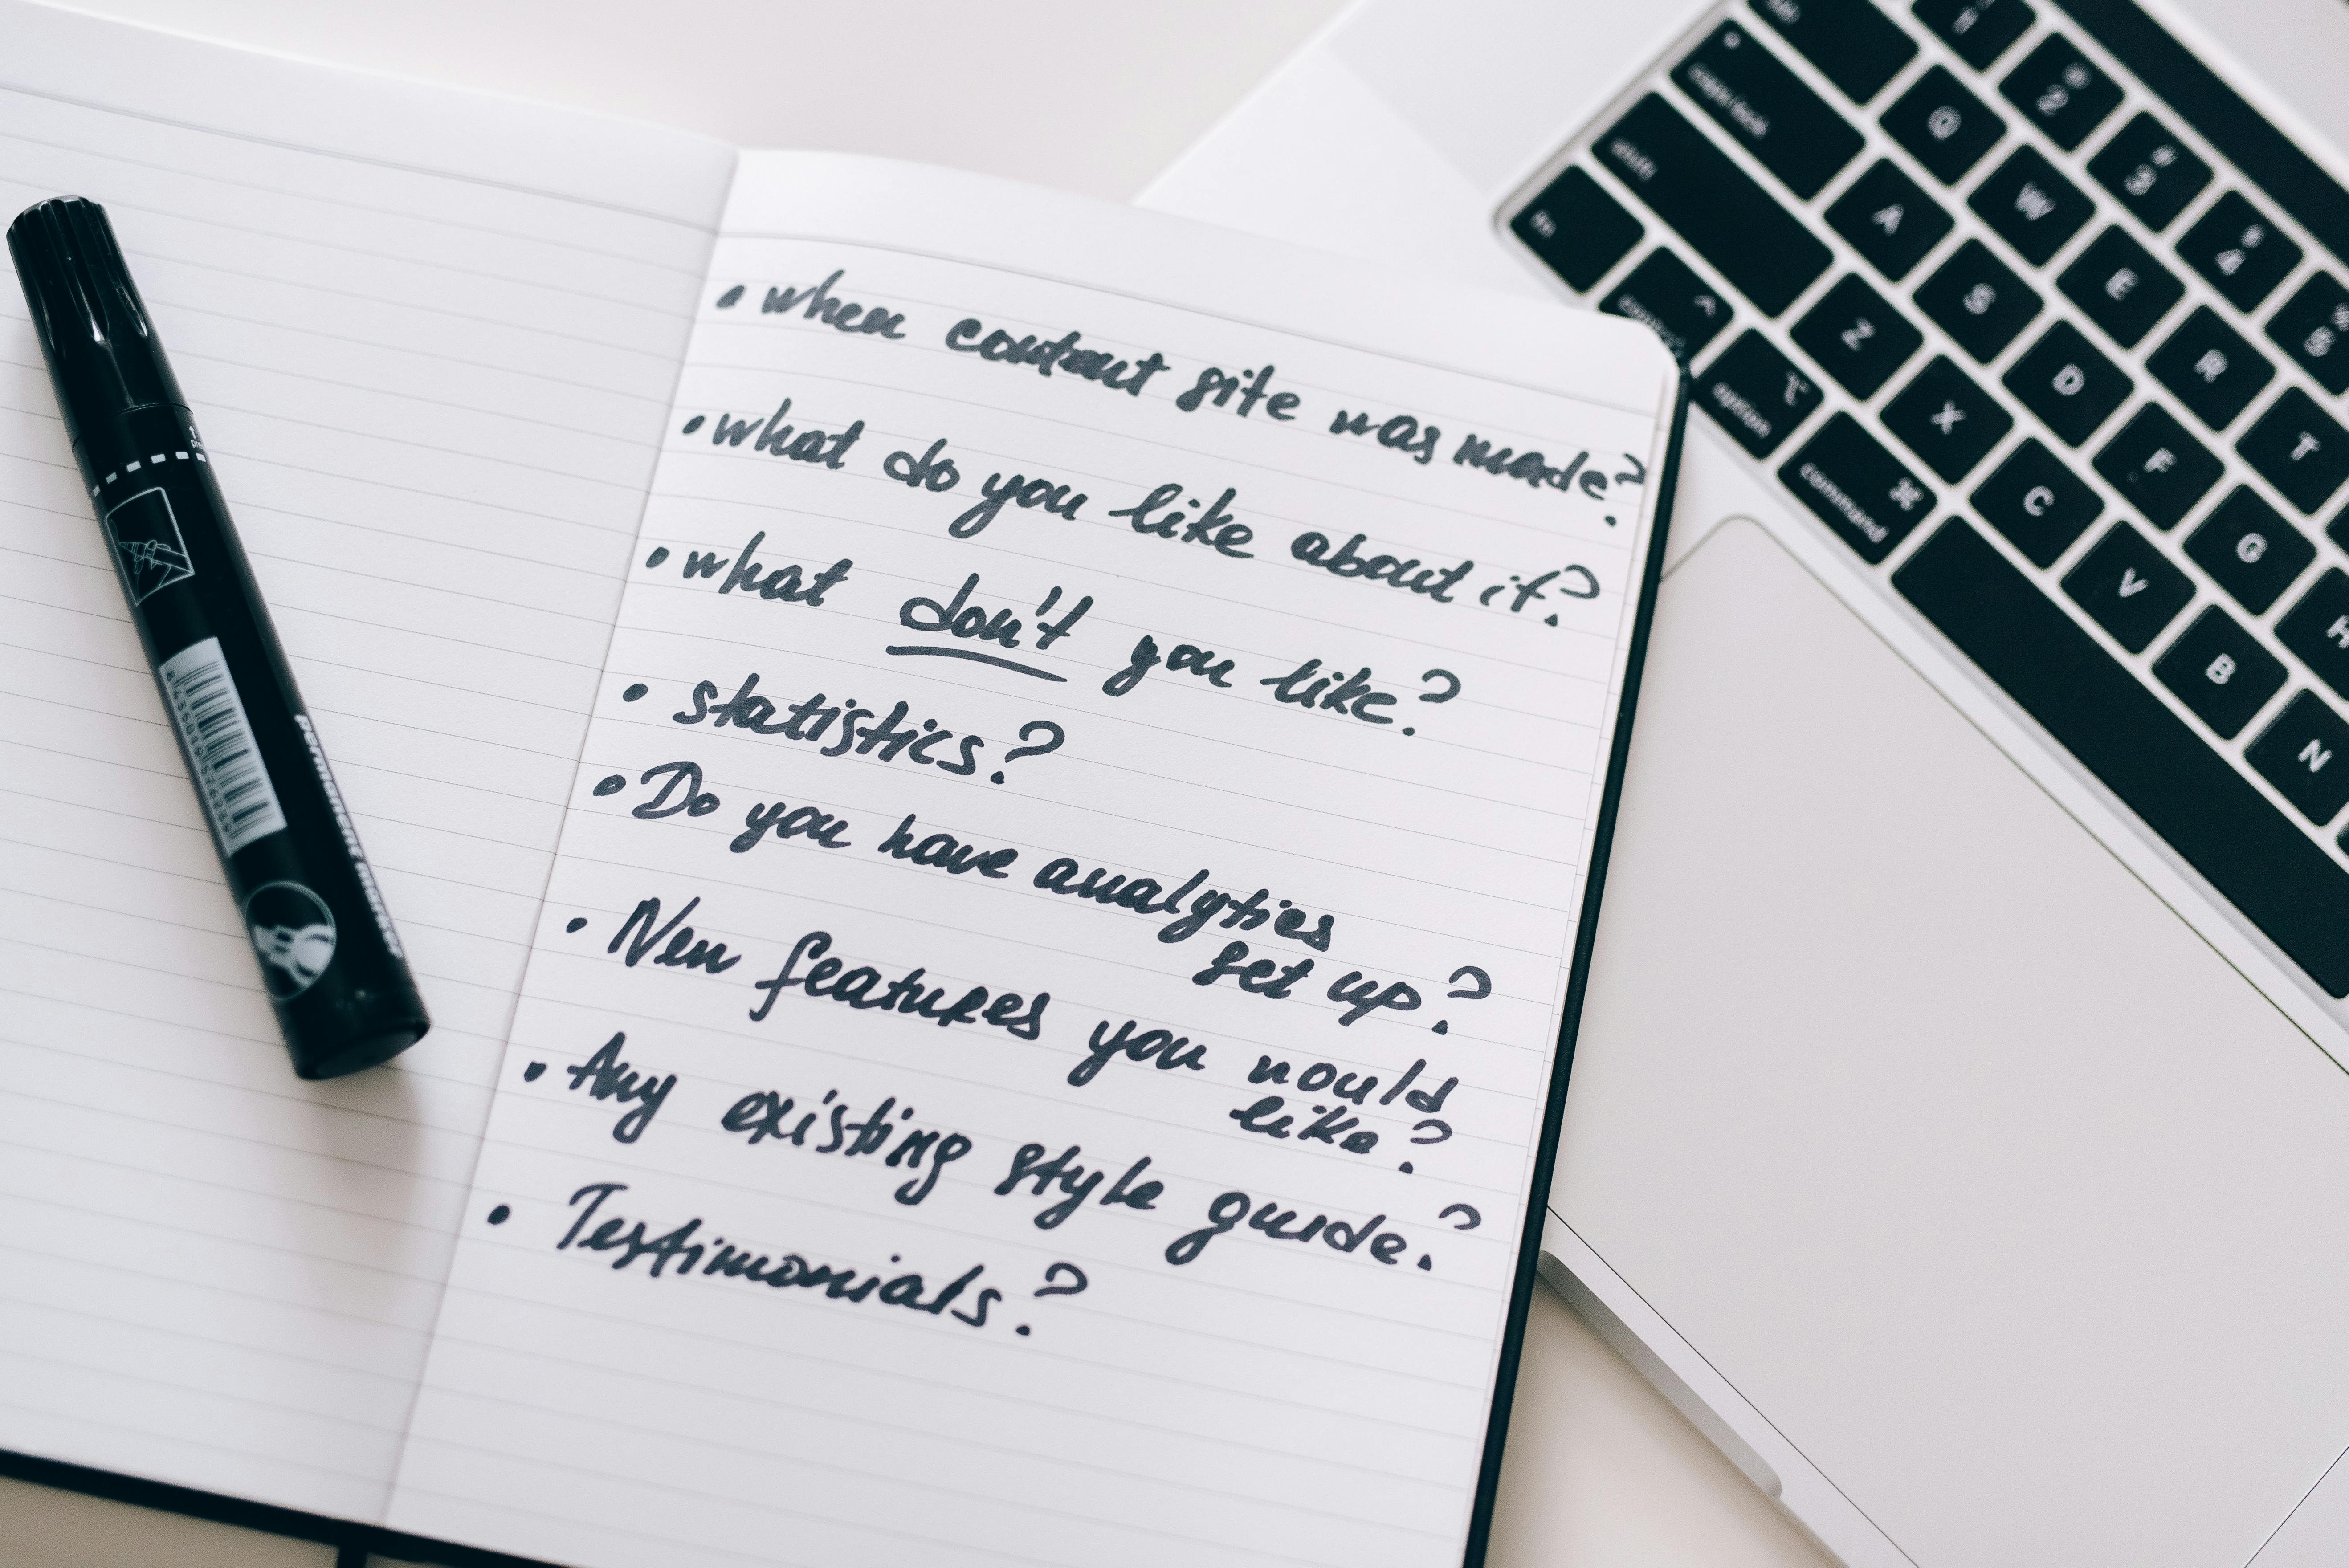 • when content site was made?
• what do you like about it?
• what don't you like?
• statistics?
• Do you have analytics
set up?
• New features you would
like?
• Any existing style guide?
• Testimonials?
permanent marker
8435049576239
1
@
2
#
3
$
4
%
5
caps lock
Q
W
E
R
T
shift
A
S
D
F
G
H
fn
Z
X
C
V
B
N
^
control
⌥
option
⌘
command